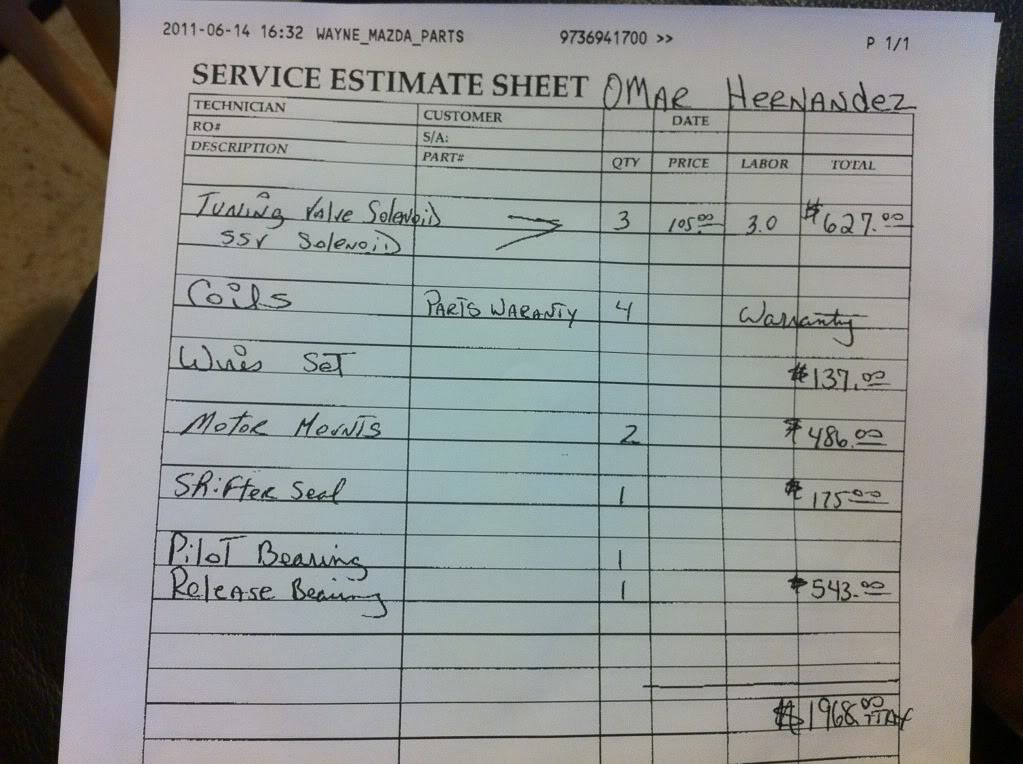 2011-06-14 16:32 WAYNE_MAZDA_PARTS 9736941700 >> P 1/1
SERVICE ESTIMATE SHEET OMAR HERNANdez
TECHNICIAN CUSTOMER DATE
RO# S/A:
DESCRIPTION PART# QTY PRICE LABOR TOTAL
Tuning Valve Solenoid 3 105.00 3.0 $627.00
SSV Solenoid
Coils PARTS WARANTY 4 Warranty
Wires Set $137.00
Motor Mounts 2 $486.00
Shifter Seal 1 $175.00
Pilot Bearing 1
Release Bearing 1 $543.00
$1968.00 +TAX